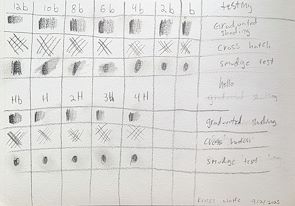 12b 10b 8b 6b 4b 2b b testing
Graduated shading
Cross hatch
Smudge test
hello
Hb H 2H 3H 4H
graduated shading
Cross hatch
Smudge test